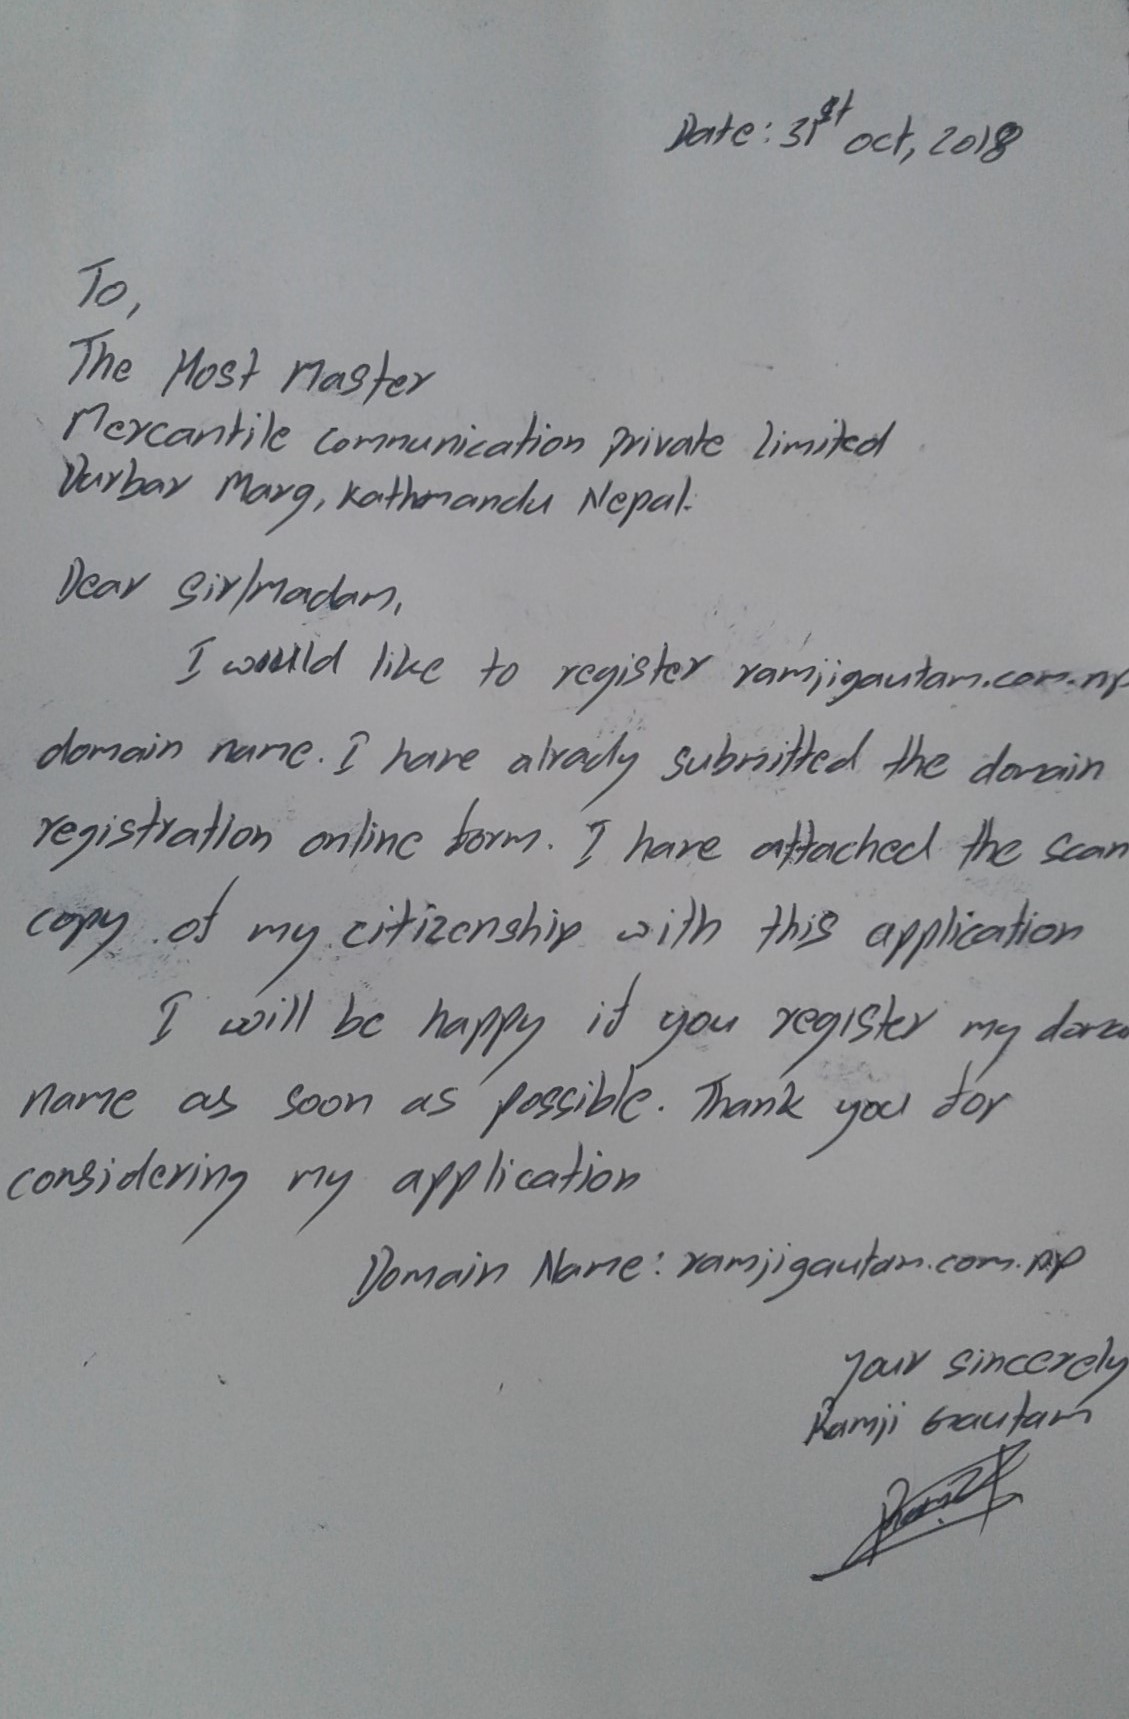 Date: 31st oct, 2018
To,
The Host Master
Mercantile communication private limited
Durbar Marg, Kathmandu Nepal.
Dear Sir/madam,
I would like to register ramjigautam.com.np
domain name. I have alrady submitted the domain
registration online form. I have attached the scan
copy of my citizenship with this application
I will be happy if you register my
name as soon as possible. Thank you for
considering my application
Domain Name: ramjigautam.com.np
your sincerely
Ramji Gautam